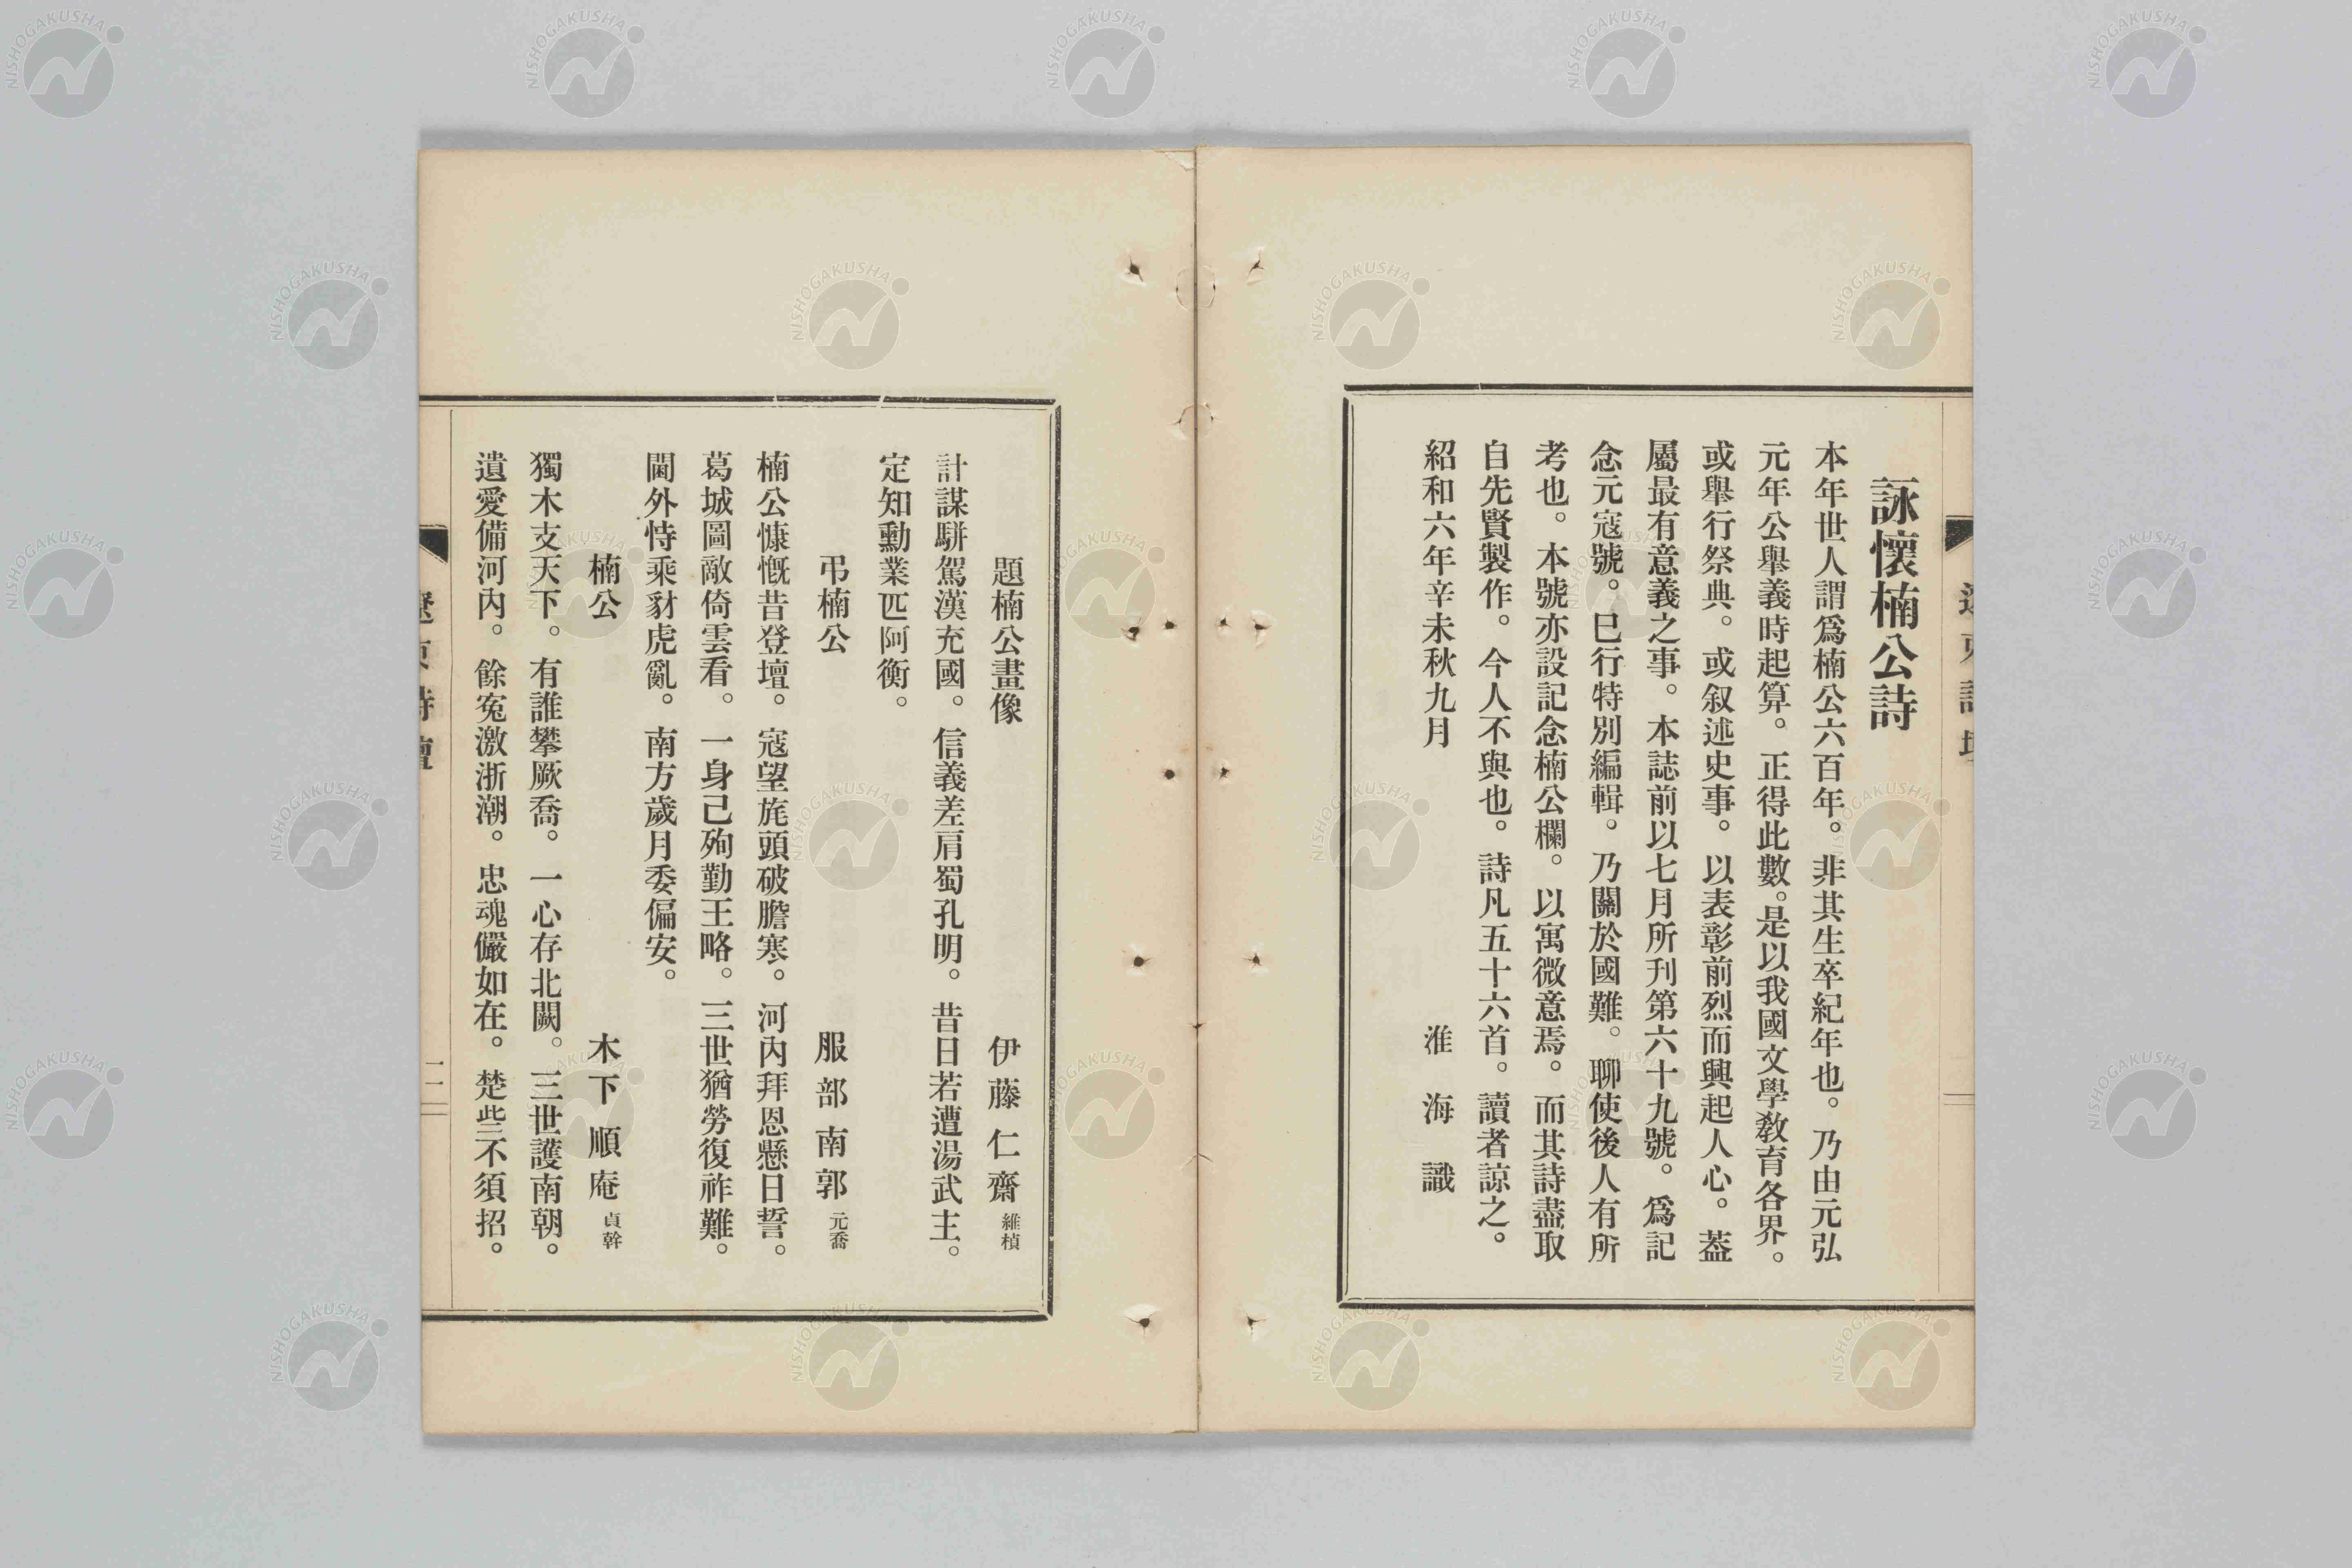 詠懷楠公詩
本年世人謂爲楠公六百年。非其生卒紀年也。乃由元弘
元年公舉義時起算。正得此數。是以我國文學教育各界。
或舉行祭典。或叙述史事。以表彰前烈而興起人心。蓋
屬最有意義之事。本誌前以七月所刊第六十九號。爲記
念元寇號。巳行特別編輯。乃關於國難。聊使後人有所
考也。本號亦設記念楠公欄。以寓微意焉。而其詩盡取
自先賢製作。今人不與也。詩凡五十六首。讀者諒之。
紹和六年辛未秋九月 淮海識
題楠公畫像 伊藤仁齋 維楨
計謀駢駕漢充國。信義差肩蜀孔明。昔日若遭湯武主。
定知勳業匹阿衡。
弔楠公 服部南郭 元喬
楠公慷慨昔登壇。寇望旄頭破膽寒。河內拜恩懸日誓。
葛城圖敵倚雲看。一身己殉勤王略。三世猶勞復祚難。
閫外恃乘豺虎亂。南方歲月委偏安。
楠公 木下順庵 貞幹
獨木支天下。有誰攀厥喬。一心存北闕。三世護南朝。
遺愛備河內。餘寃激浙潮。忠魂儼如在。楚些不須招。
遼東詩壇
二
NISHOGAKUSHA